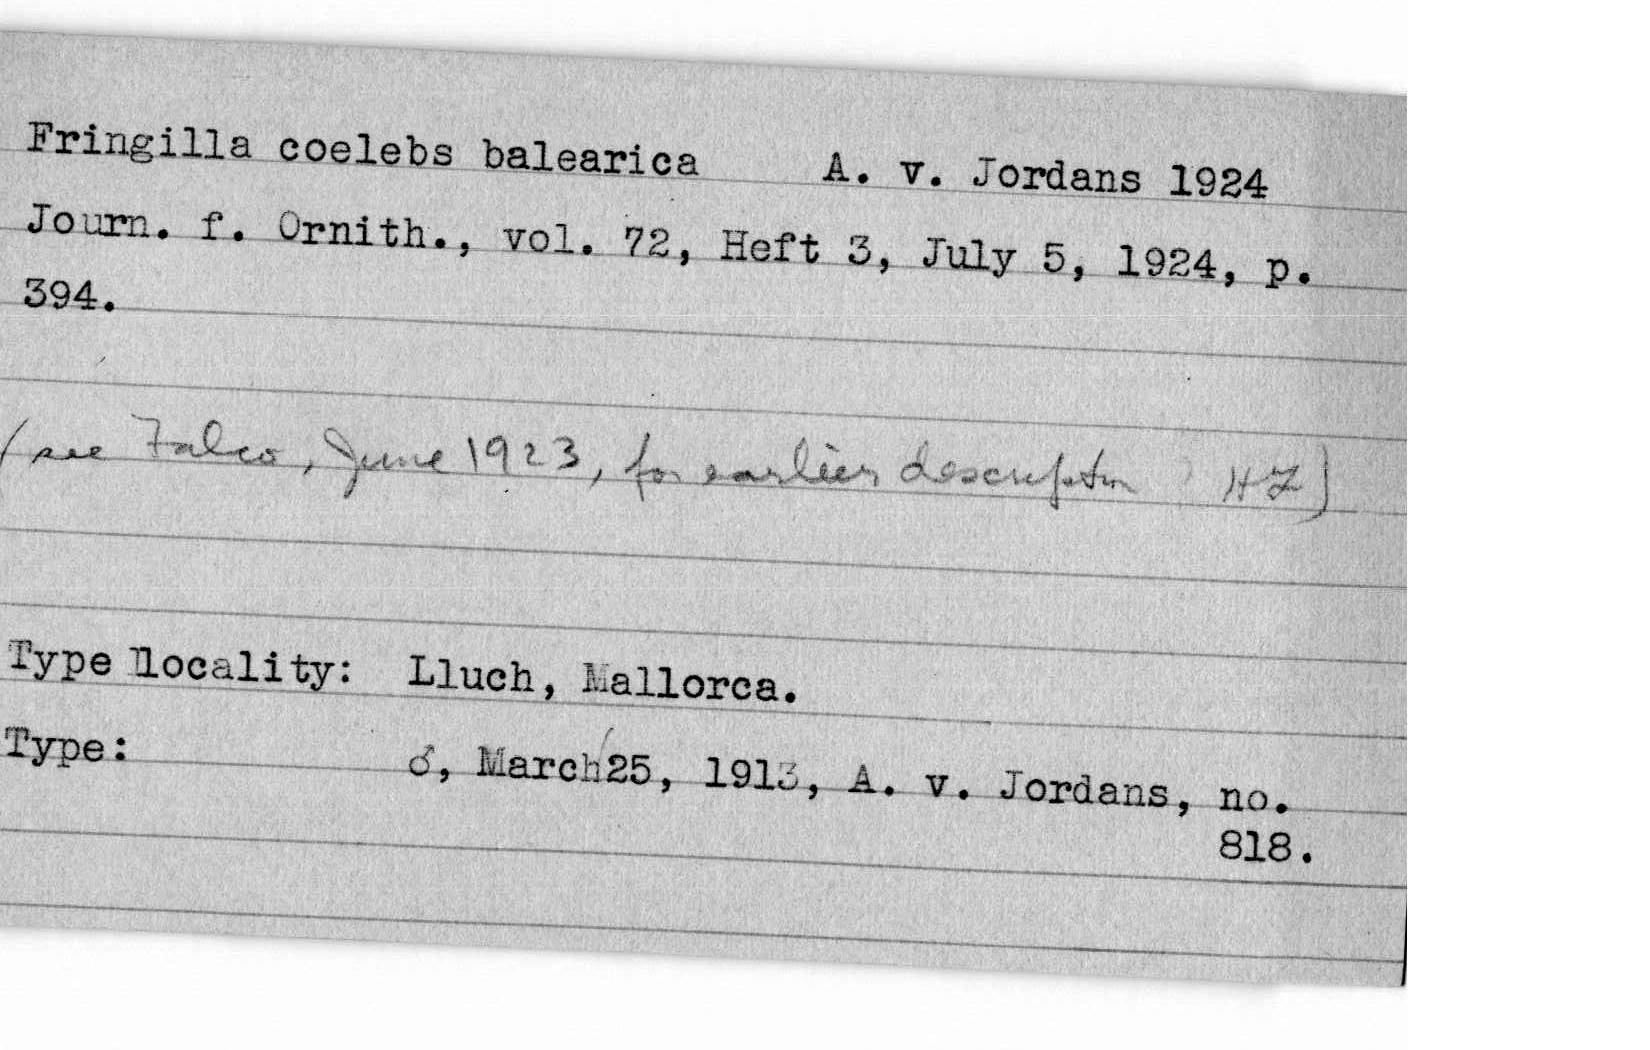 Fringilla coelebs balearica A. v. Jordans 1924
Journ. f. Ornith., vol. 72, Heft 3, July 5, 1924, p.
394.
(see Falco, June 1923, for earlier description HZ)
Type locality: Lluch, Mallorca.
Type: ♂, March 25, 1913, A. v. Jordans, no.
818.